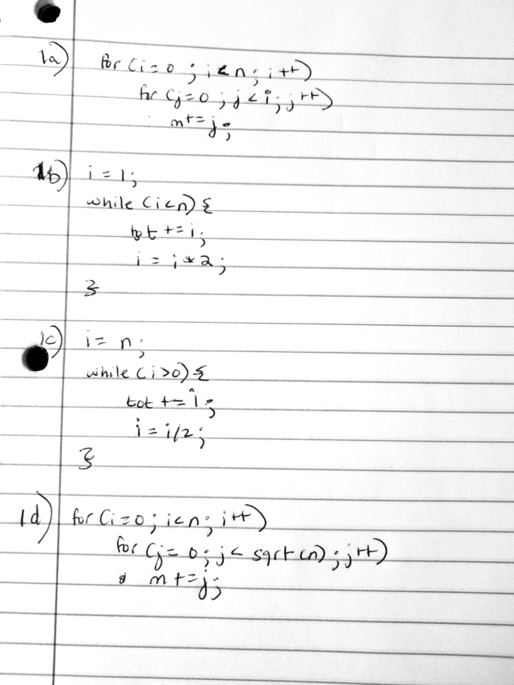 1a) for (i=0 ; i<n; i++)
for (j=0 ; j<i; j++)
m+=j;
1b) i = 1;
while (i<n) {
tot += i;
i = i*2;
}
1c) i = n;
while (i>0) {
tot += i;
i = i/2;
}
1d) for (i=0; i<n; i++)
for (j=0; j< sqrt(n); j++)
m+=j;